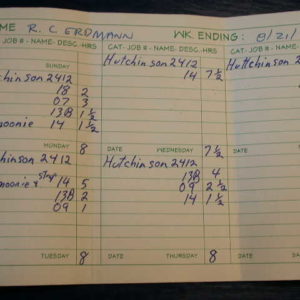 ME R. C. ERDMANN WK. ENDING: 8/21/
CAT- JOB # - NAME- DESC. HRS
SUNDAY
tchinson 2412
18 2
07 3
13B 1 1/2
moonie 14 1 1/2
MONDAY 8
chinson 2412
moonie & stop 14 5
13B 2
09 1
TUESDAY 8
CAT- JOB # - NAME- DESC. HRS
Hutchinson 2412
14 7 1/2
DATE WEDNESDAY 7 1/2
Hutchinson 2412
13B 4
09 2 1/2
14 1 1/2
DATE THURSDAY 8
CAT- JOB # - NAME-
Hutchinson
DATE
DATE